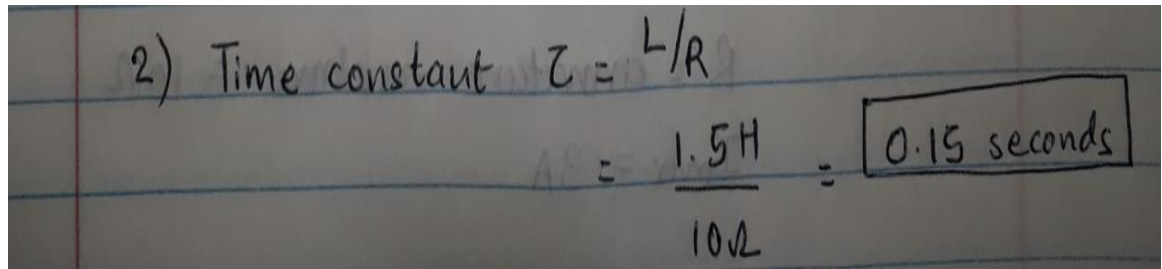 2) Time constant τ = L/R
= 1.5H / 10Ω = 0.15 seconds